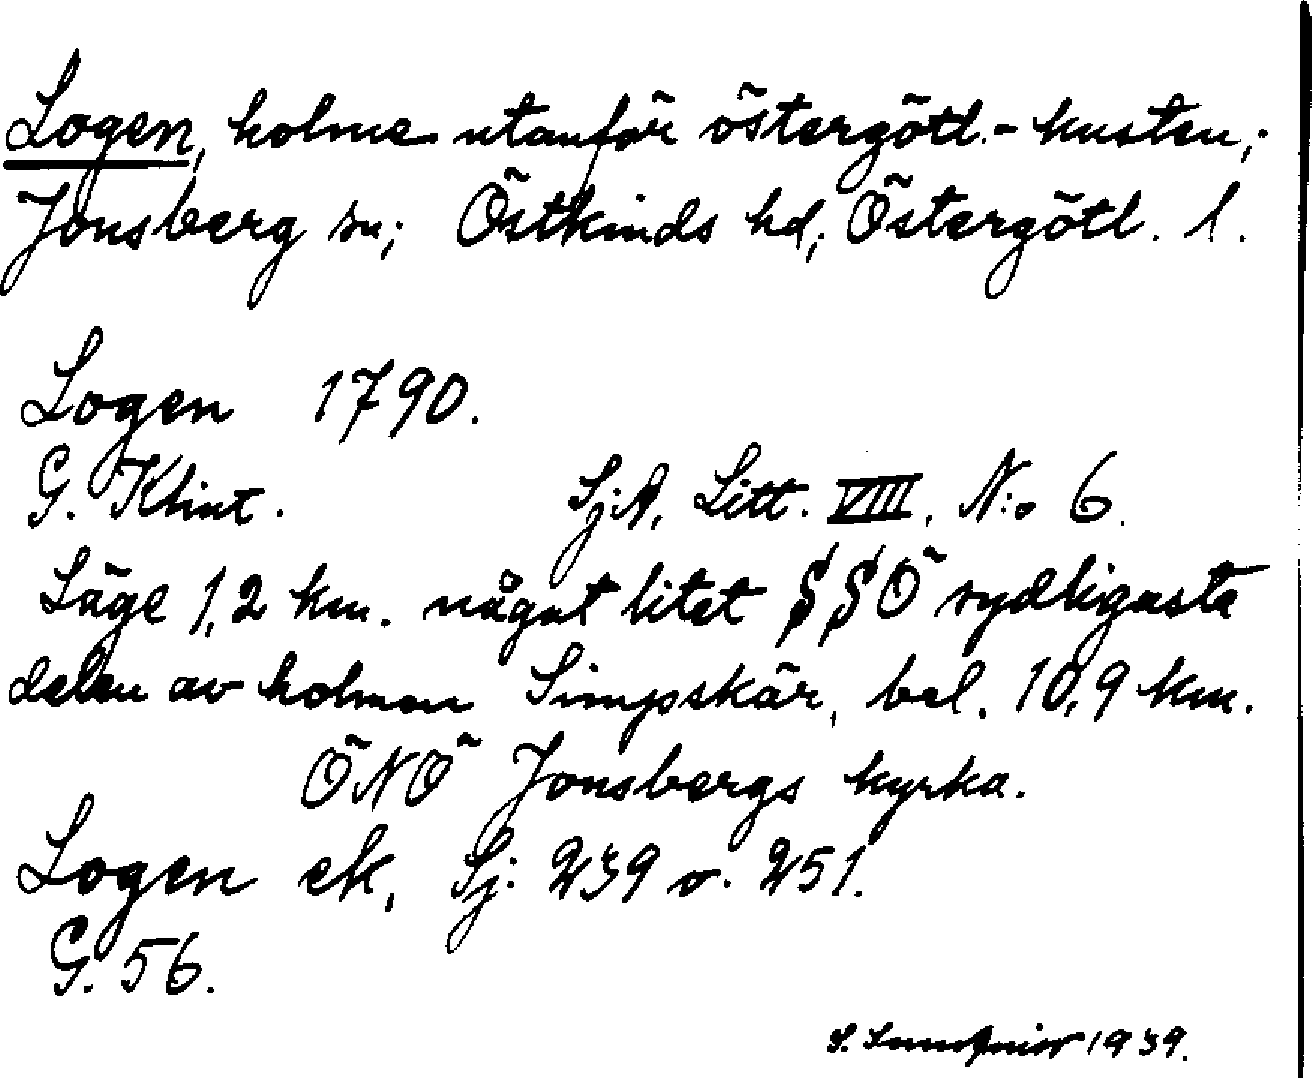 Logen, holme utanför östergötl.- kusten;
Jonsberg sn; Östkinds hd; Östergötl. l.
Logen 1790.
G. Klint. Sj.A. Litt. VIII. N:o 6.
Läge 1,2 km. något litet SSÖ sydligaste
delen av holmen Simpskär, bel. 10,9 km.
ÖNÖ Jonsbergs kyrka.
Logen ek, Sj. 239 o. 251.
G. 56.
S. 1939.